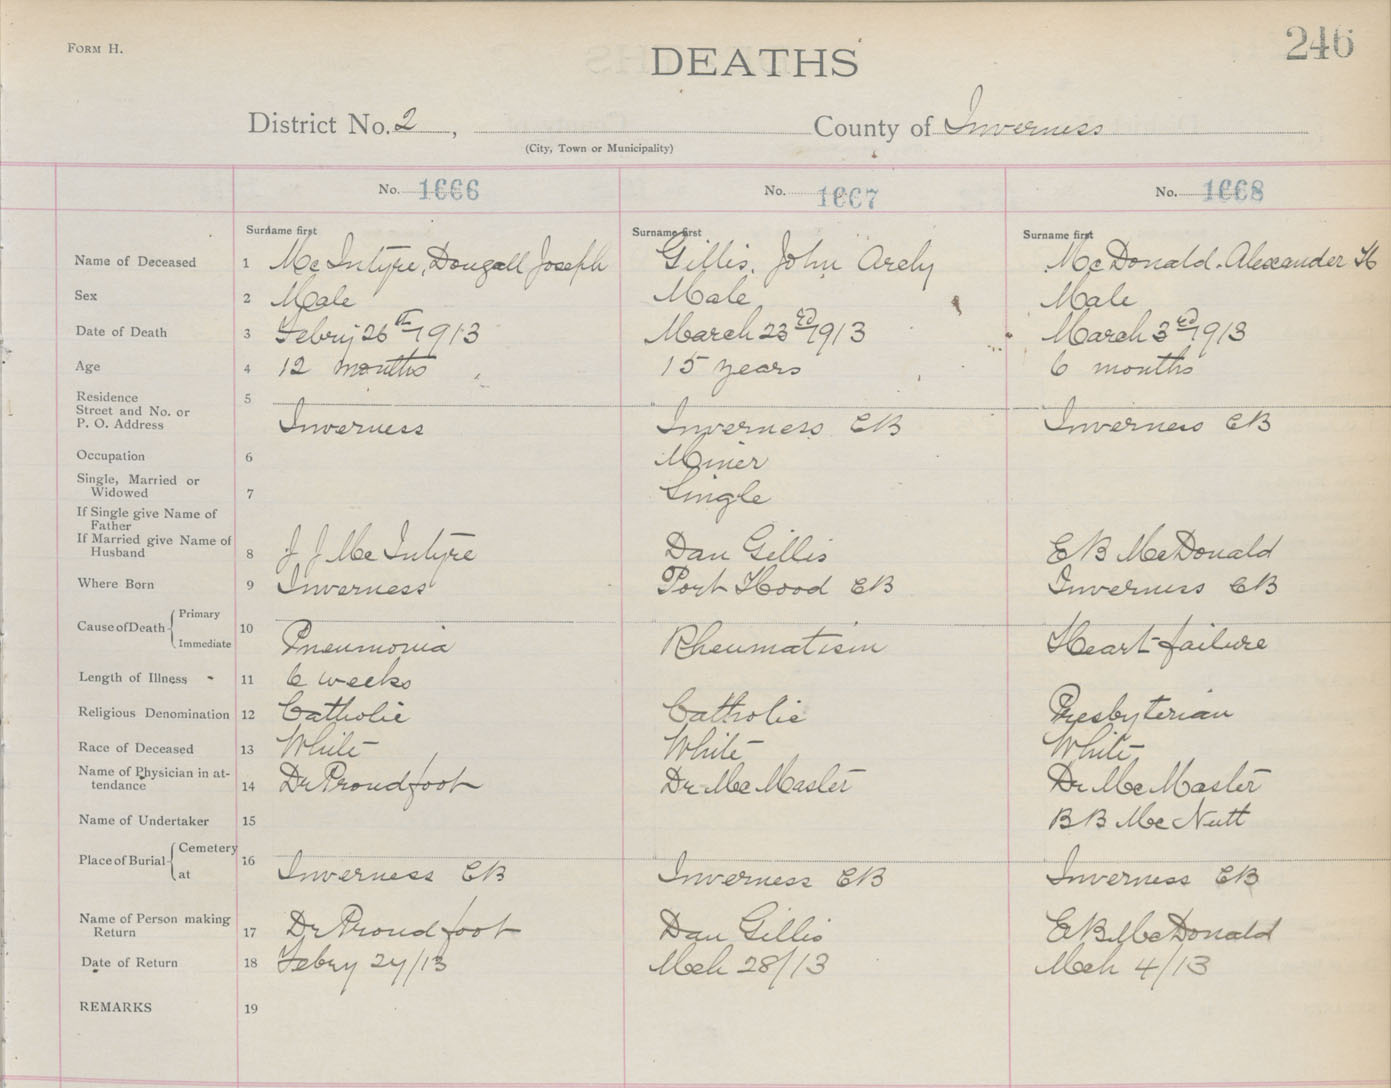 FORM H.
246
DEATHS
District No. 2, County of Inverness
(City, Town or Municipality)
No. 1666 No. 1667 No. 1668
Surname first Surname first Surname first
Name of Deceased 1 McIntyre, Dougall Joseph Gillis, John Archy McDonald, Alexander H
Sex 2 Male Male Male
Date of Death 3 Febry 26th 1913 March 23rd 1913 March 3rd 1913
Age 4 12 months 15 years 6 months
Residence 5
Street and No. or
P. O. Address Inverness Inverness CB Inverness CB
Occupation 6 Miner
Single, Married or
Widowed 7 Single
If Single give Name of
Father
If Married give Name of
Husband 8 J J McIntyre Dan Gillis E B McDonald
Where Born 9 Inverness Port Hood CB Inverness CB
Cause of Death Primary 10
Immediate Pneumonia Rheumatism Heart failure
Length of Illness 11 6 weeks
Religious Denomination 12 Catholic Catholic Presbyterian
Race of Deceased 13 White White White
Name of Physician in at-
tendance 14 Dr Proudfoot Dr McMaster Dr McMaster
Name of Undertaker 15 B B McNutt
Place of Burial Cemetery 16
at Inverness CB Inverness CB Inverness CB
Name of Person making
Return 17 Dr Proudfoot Dan Gillis E B McDonald
Date of Return 18 Febry 27/13 Mch 28/13 Mch 4/13
REMARKS 19